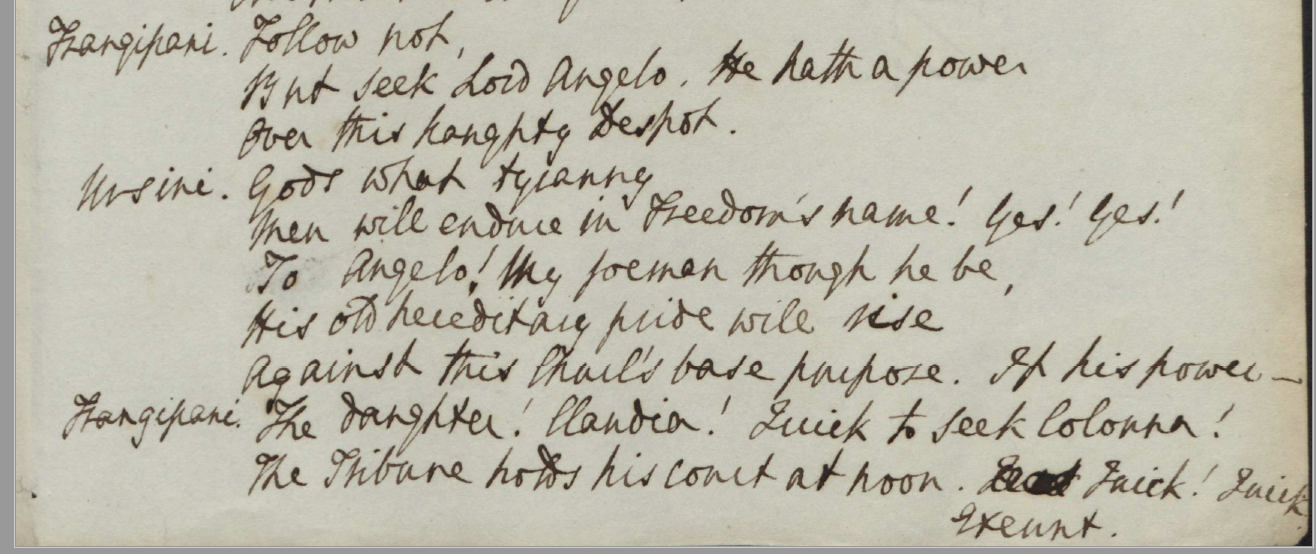 Frangipani. Follow not,
But seek Lord Angelo. He hath a power
Over this haughty Despot.
Ursini. Gods what tyranny
Men will endure in Freedom's name! Yes! Yes!
To Angelo! My foeman though he be,
His old hereditary pride will rise
Against this Churl's base purpose. If his power—
Frangipani. The daughter! Claudia! Quick to seek Colonna!
The Tribune holds his court at noon. Quick! Quick
Exeunt.